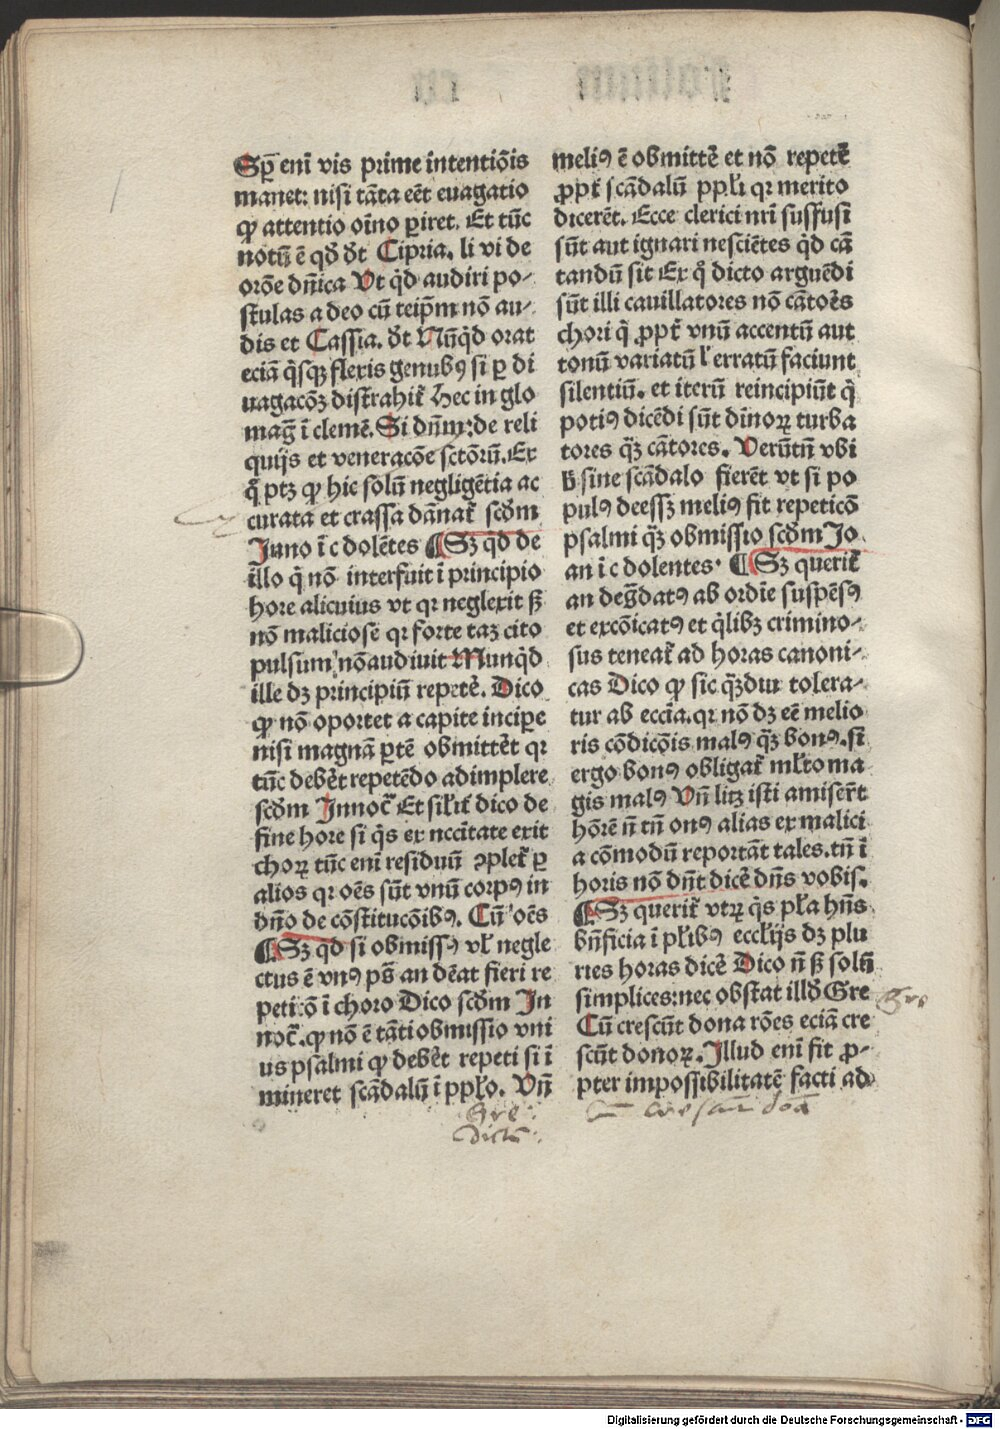 Sꝑ enī vis prime intentiōis
manet: nisi tāta eēt euagatio
ꝙ attentio oīno ꝑiret. Et tūc
notū ē qð ðt Cipria. li vi de
orōe dn̄ica Vt qͥd audiri po-
stulas a deo cū teip̄m nō au-
dis et Cassia. ðt Nūqͥd orat
eciā qͥsqꝫ flexis genubꝰ si ꝑ di
uagacōꝫ distrahit᷑ Hec in glo
mag̅ ī clemē. Si dn̄m: de reli
quijs et veneracōe sctōrū. Ex
qͦ ptꝫ ꝙ hic solū negligētia ac
curata et crassa dānat᷑ scðm
Inno ī c dolētes ¶ Sꝫ qͥd de
illo qͥ nō interfuit ī principio
hore alicuius vt qꝛ neglexit sꝫ
nō maliciose qꝛ forte taꝫ cito
pulsum nō audiuit Nunqͥd
ille dꝫ principiū repetē. Dico
ꝙ nō oportet a capite inciꝑe
nisi magnā ꝑtē obmittēt qꝛ
tūc debēt repetēdo adimplere
scðm Innoc̄ Et sil'it᷑ dico de
fine hore si qͥs ex nccītate exit
choꝝ tūc enī residuū ꝯplet᷑ ꝑ
alios qꝛ oēs sūt vnū corpꝰ in
dn̄o de cōstitucōibꝰ. Cū oēs
¶ Sꝫ qͥd si obmissꝰ vl' negle
ctus ē vnꝰ pṡ an dēat fieri re
peticō ī choro Dico scðm In
noc̄. ꝙ nō ē tāti obmissio vni
us psalmi ꝙ debēt repeti si ī
mineret scādalū ī ppl'o. Vn̄
meliꝰ ē obmittē et nō repetē
ꝓpt᷑ scādalū ppl'i qꝛ merito
dicerēt. Ecce clerici nrī suffusi
sūt aut ignari nesciētes qͥd cā
tandū sit Ex qͦ dicto arguēdi
sūt illi cauillatores nō cātoēs
chori qͥ ꝓpt᷑ vnū accentū aut
tonū variatū l' erratū faciunt
silentiū. et iterū reincipiūt qͥ
potiꝰ dicēdi sūt dīnoꝝ turba
tores qͣꝫ cātores. Verūtn̄ vbi
ħ sine scādalo fierēt vt si po
pulꝰ deessꝫ meliꝰ fit repeticō
psalmi qͣꝫ obmissio scðm Jo
an ī c dolentes. ¶ Sꝫ querit᷑
an deg̅datꝰ ab ordīe suspēsꝰ
et excōicatꝰ et qͥlibꝫ crimino-
sus teneat᷑ ad horas canoni-
cas Dico ꝙ sic qͣꝫdiu tolera-
tur ab eccīa. qꝛ nō dꝫ eē melio
ris cōdicōis malꝰ qͣꝫ bonꝰ. si
ergo bonꝰ obligat᷑ ml'to ma
gis malꝰ Vn̄ litꝫ isti amiser̄t
hōrē n̄ tn̄ onꝰ alias ex malici
a cōmodū reportāt tales. tn̄ ī
horis nō dn̄t dicē dn̄s vobis.
¶ Sꝫ querit᷑ vtꝝ qͥs pl'a hn̄s
bn̄ficia ī pl'ibꝰ eccl'ijs dꝫ plu
ries horas dicē Dico n̄ sꝫ solū
simplices: nec obstat illð Gre
Cū crescūt dona rōes eciā cre
scūt donoꝝ. Illud enī fit ꝓ-
pter impossibilitatē facti ad
gre
Gre:
dictū:
Cū crescunt dōa
Digitalisierung gefördert durch die Deutsche Forschungsgemeinschaft - DFG